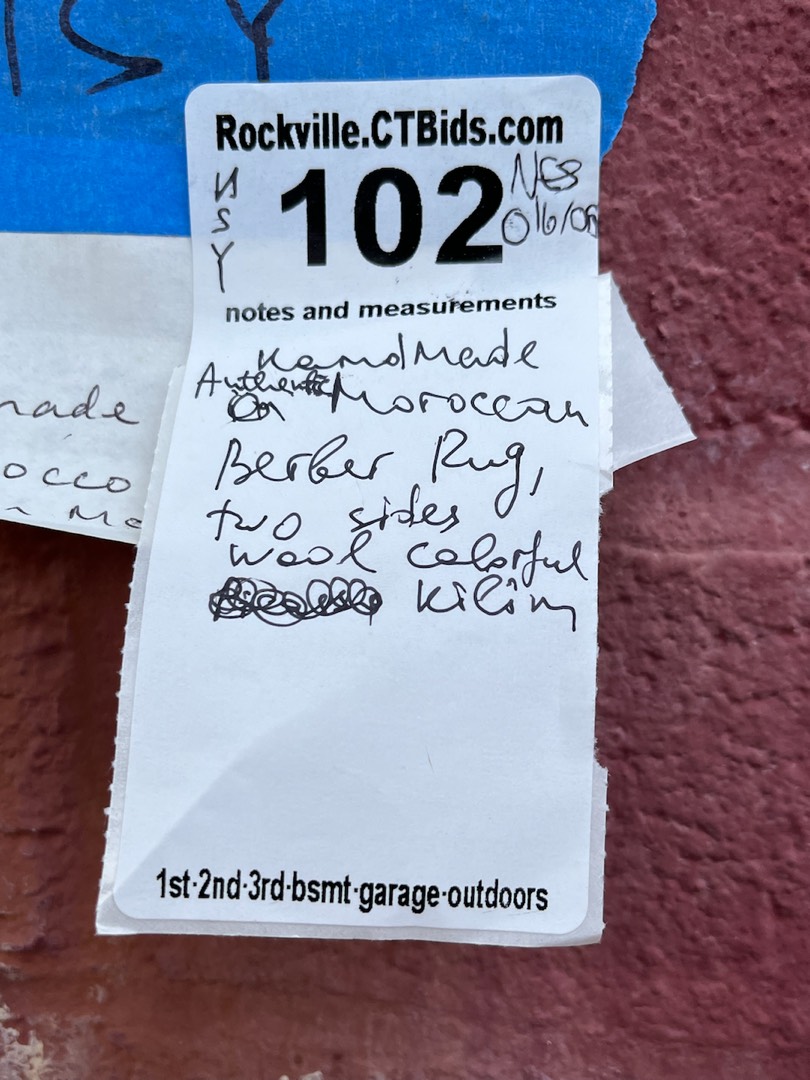 SY
Rockville.CTBids.com
NSY 102 NES
016/06
notes and measurements
HandMade
Authentic Moroccan
Berber Rug,
two sides
wool colorful
Kilim
1st·2nd·3rd·bsmt·garage·outdoors
made
occo